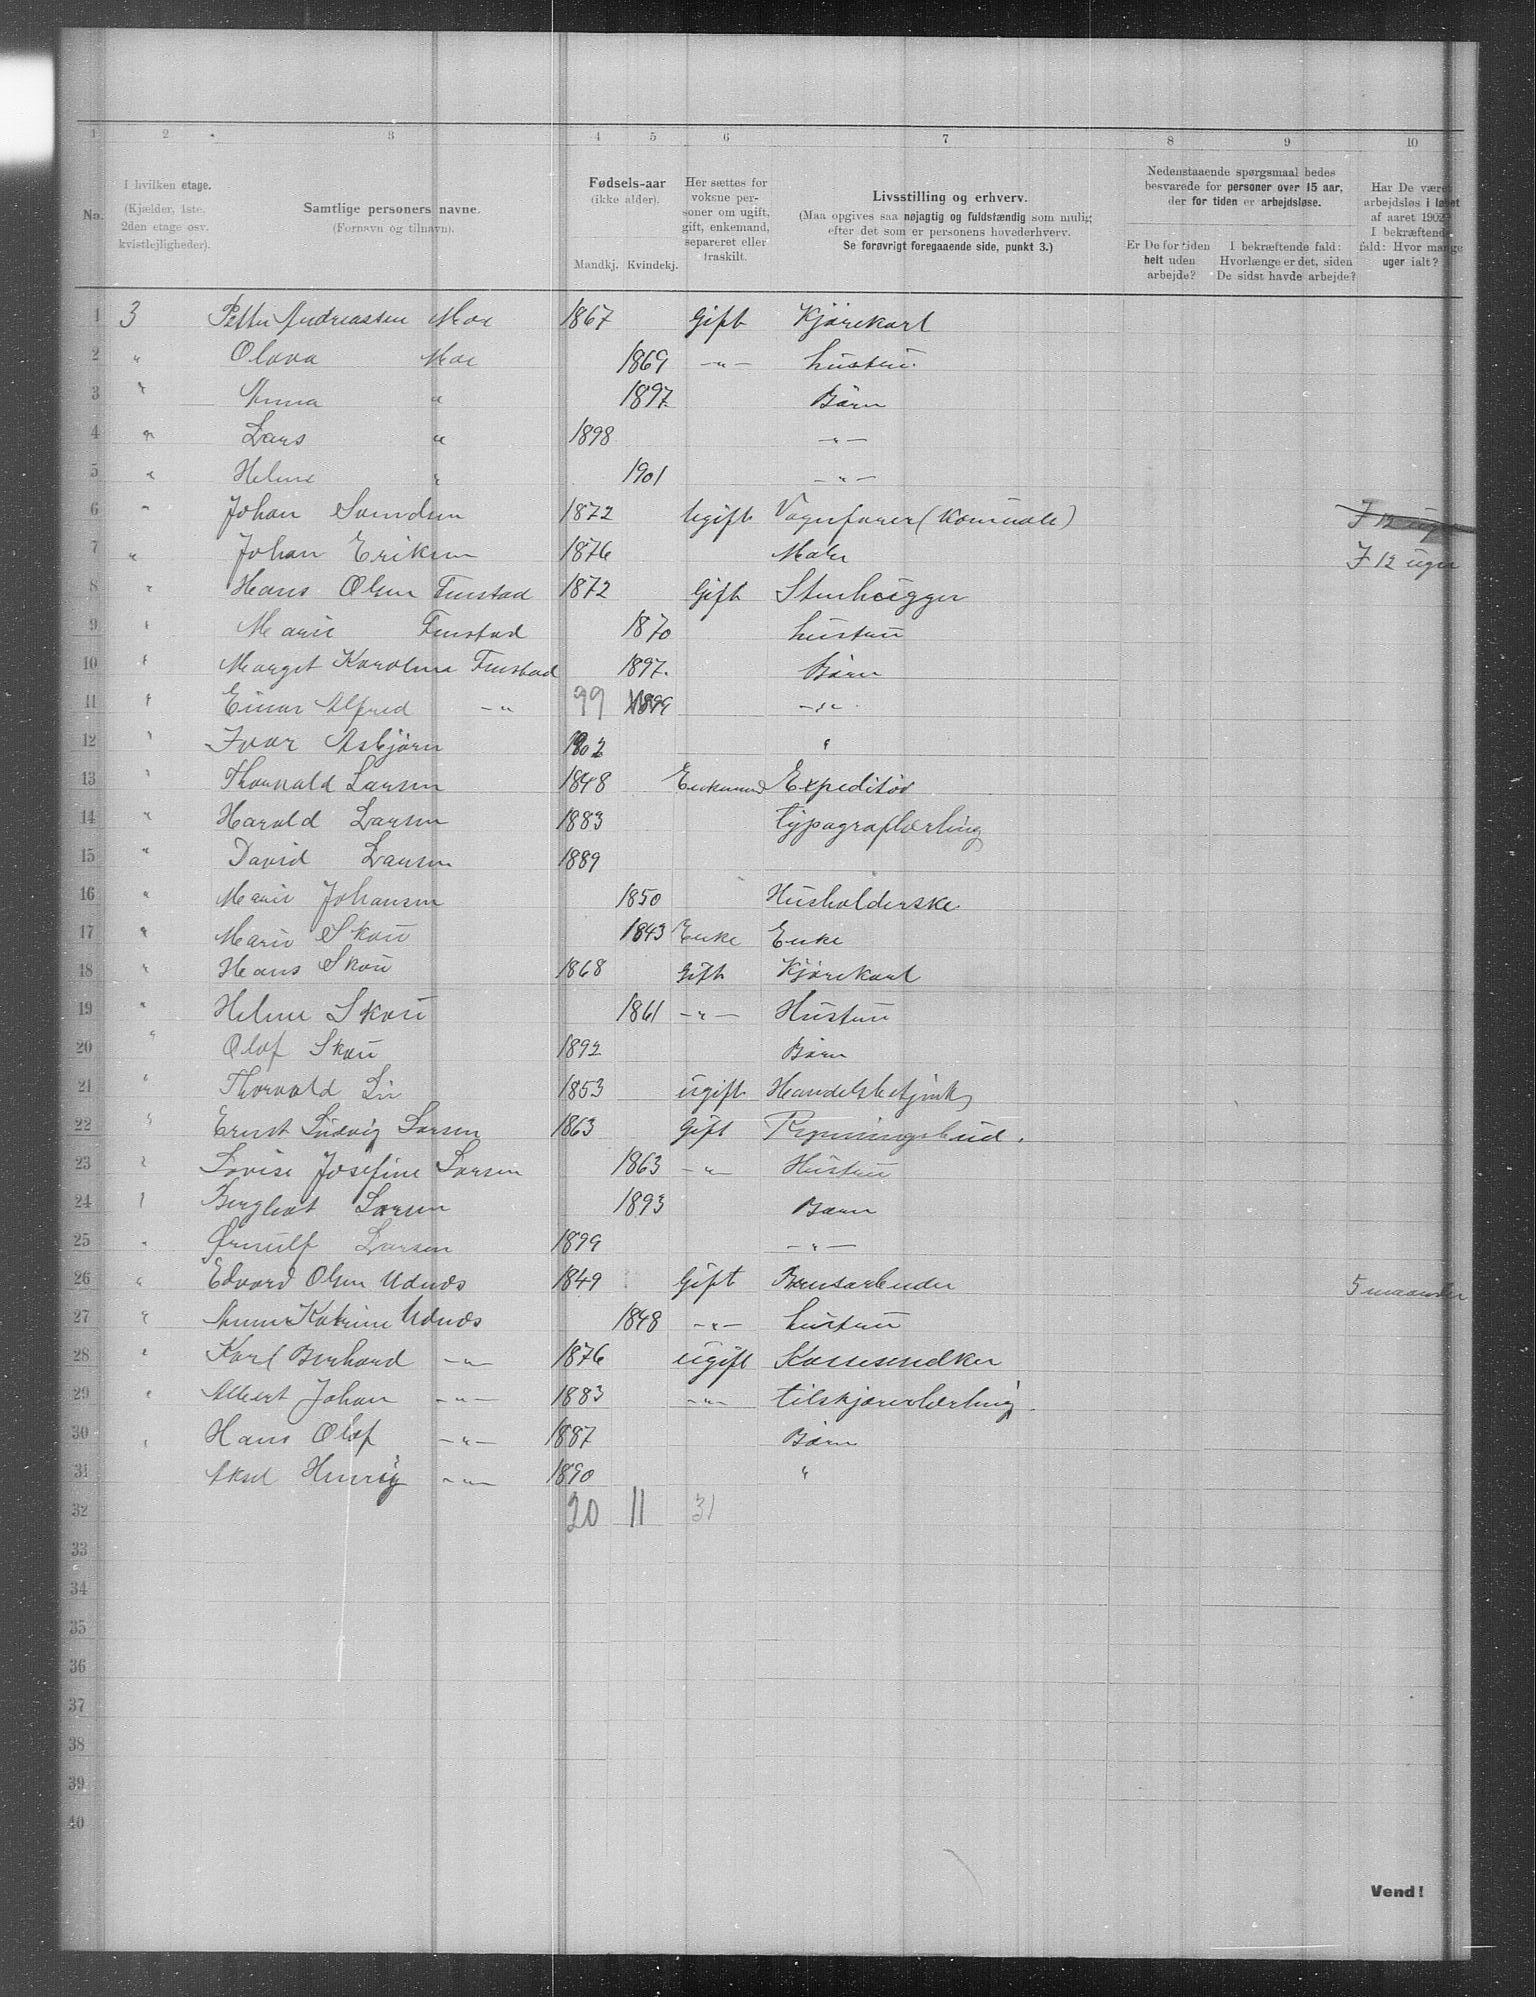 1 2 3 4 5 6 7 8 9 10
No.
I hvilken etage.
(Kjælder, 1ste,
2den etage osv.
kvistlejligheder).
Samtlige personers navne.
(Fornavn og tilnavn).
Fødsels-aar
(ikke alder).
Mandkj. Kvindekj.
Her sættes for
voksne per-
soner om ugift,
gift, enkemand,
separeret eller
fraskilt.
Livsstilling og erhverv.
(Maa opgives saa nøjagtig og fuldstændig som mulig
efter det som er personens hovederhverv.
Se forøvrigt foregaaende side, punkt 3.)
Nedenstaaende spørgsmaal bedes
besvarede for personer over 15 aar,
der for tiden er arbejdsløse.
Er De for tiden
helt uden
arbejde?
I bekræftende fald:
Hvorlænge er det, siden
De sidst havde arbejde?
Har De været
arbejdsløs i løbet
af aaret 1902?
I bekræftende
fald: Hvor mange
uger ialt?
1 3 Petter Andreassen Moe 1867 Gift Kjørekarl
2 " Olava Moe 1869 -"- hustru.
3 " Anna " 1897 Barn
4 " Lars " 1898 -"-
5 " Helene " 1901 -"-
6 " Johan Svendsen 1872 Ugift Vognfører (Komunale) J 12 uger
7 " Johan Eriksen 1876 Maler J 12 uger
8 " Hans Olsen Finstad 1872 Gift Stenhugger
9 " Marie Finstad 1870 hustru
10 " Marget Karolina Finstad 1897. Barn
11 " Einar Alfred -"- 99 1899 -"-
12 " Ivar Asbjørn 1902 "
13 " Thorvald Larsen 1848 Enkemand Expeditør
14 " Harald Larsen 1883 typograflærling
15 " David Larsen 1889
16 " Marie Johansen 1850 Husholderske
17 " Marie Skou 1843 Enke Enke
18 " Hans Skou 1868 Gift Kjørekarl
19 " Helene Skou 1861 -"- Hustru
20 " Olaf Skou 1892 Barn
21 " Thorvald Lie 1853 ugift Handelsbetjent
22 " Ernst Ludvig Larsen 1863 Gift Regningsbud.
23 " Lovise Josefine Larsen 1863 -"- Hustru
24 " Bergliot Larsen 1893 Barn
25 " Ørnulf Larsen 1899 -"-
26 " Edvard Olsen Udnæs 1849 Gift Brusarbeider 5 maaneder
27 " Anne Katrine Udnæs 1848 -"- hustru
28 " Karl Berhard -"- 1876 ugift Kassesnedker
29 " Albert Johan -"- 1883 -"- tilskjærerlærling.
30 " Hans Olaf -"- 1887 Barn
31 Aksel Henrig -"- 1890 "
32 20 11 31
33
34
35
36
37
38
39
40
Vend!